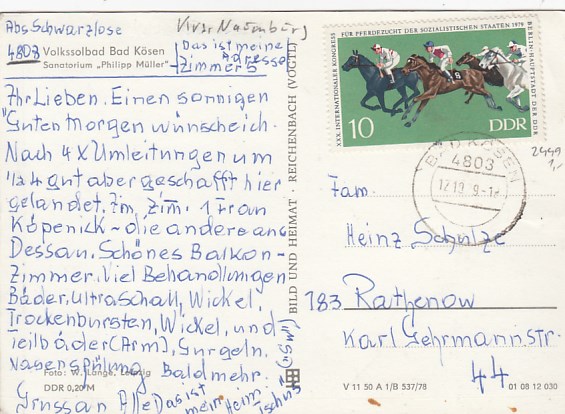 Abs Schwarzlose
Krs. Naumburg
4803 Volkssolbad Bad Kösen
Sanatorium „Philipp Müller"
Das ist meine
Adresse
Zimmer 5
Ihr Lieben. Einen sonnigen
Guten Morgen wünsche ich.
Nach 4 X Umleitungen um
1/2 4 gut aber geschafft hier
gelandet. Im Zim. 1 Frau
Köpenick - die andere aus
Dessau. Schönes Balkon-
Zimmer. Viel Behandlungen
Bäder, Ultraschall, Wickel,
Trockenbürsten, Wickel, und
Teilbäder (Arm), Gurgeln.
Nasenspülung Bald mehr.
Foto: W. Lange, Leipzig
DDR 0,20 M
Gruss an Alle Das ist
mein Heim
BILD UND HEIMAT · REICHENBACH (VOGTL)
XXX. INTERNATIONALER KONGRESS
FÜR PFERDEZUCHT DER SOZIALISTISCHEN STAATEN 1979
BERLIN-HAUPTSTADT DER DDR
10
DDR
BAD KÖSEN
4803
2449
1,-
Fam.
Heinz Schulze
183 Rathenow
Karl Gehrmannstr.
44
V 11 50 A 1/B 537/78
01 08 12 030